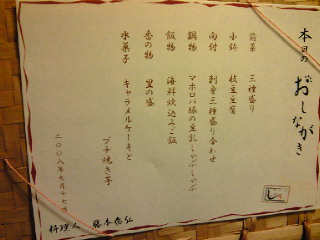 本日のおしながき
前菜 三種盛り
小鉢 枝豆豆腐
向付 刺身三種盛り合わせ
鍋物 マホロバ豚の豆乳しゃぶしゃぶ
飯物 海鮮炊込みご飯
香の物 里の盛
水菓子 キャラメルケーキと
プチ焼き芋
二〇〇八年七月十七日
料理人 藤本